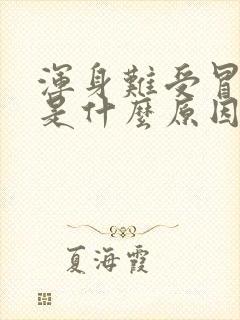 渾身難受冒
是什麼原因
夏海霞